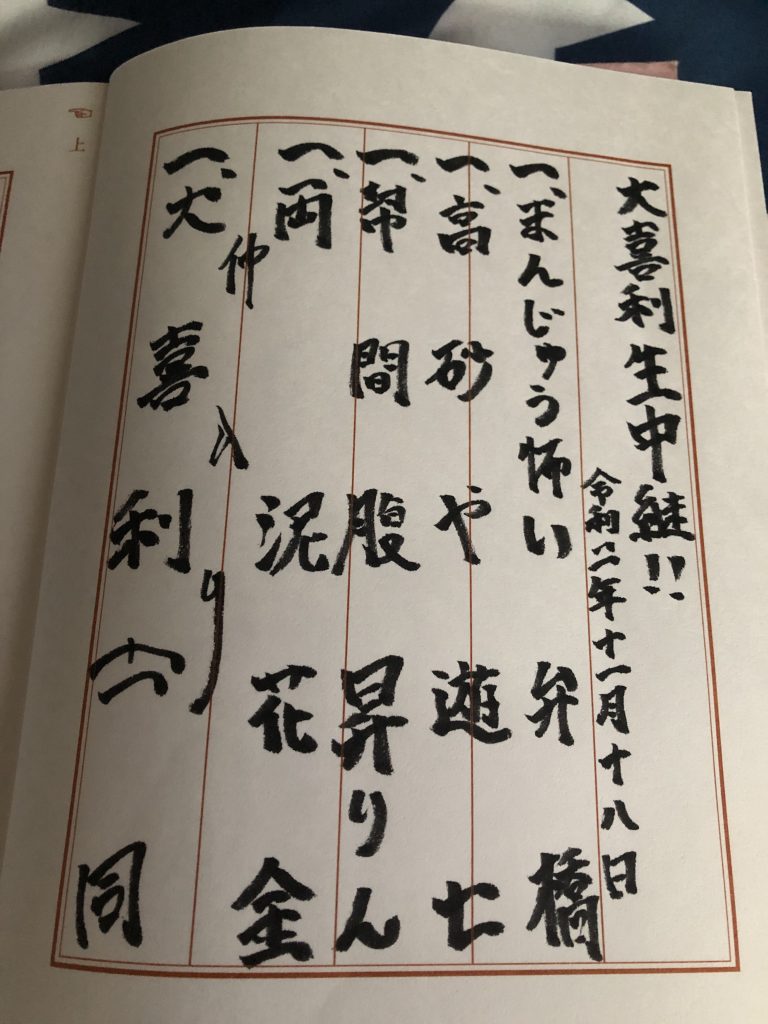 大喜利生中鮭!!
令和二年十一月十八日
一、まんじゅう怖い 弁橋
一、高砂や 遊七
一、幇間腹 昇りん
一、岡泥 花金
仲入り
一、大喜利 同
上